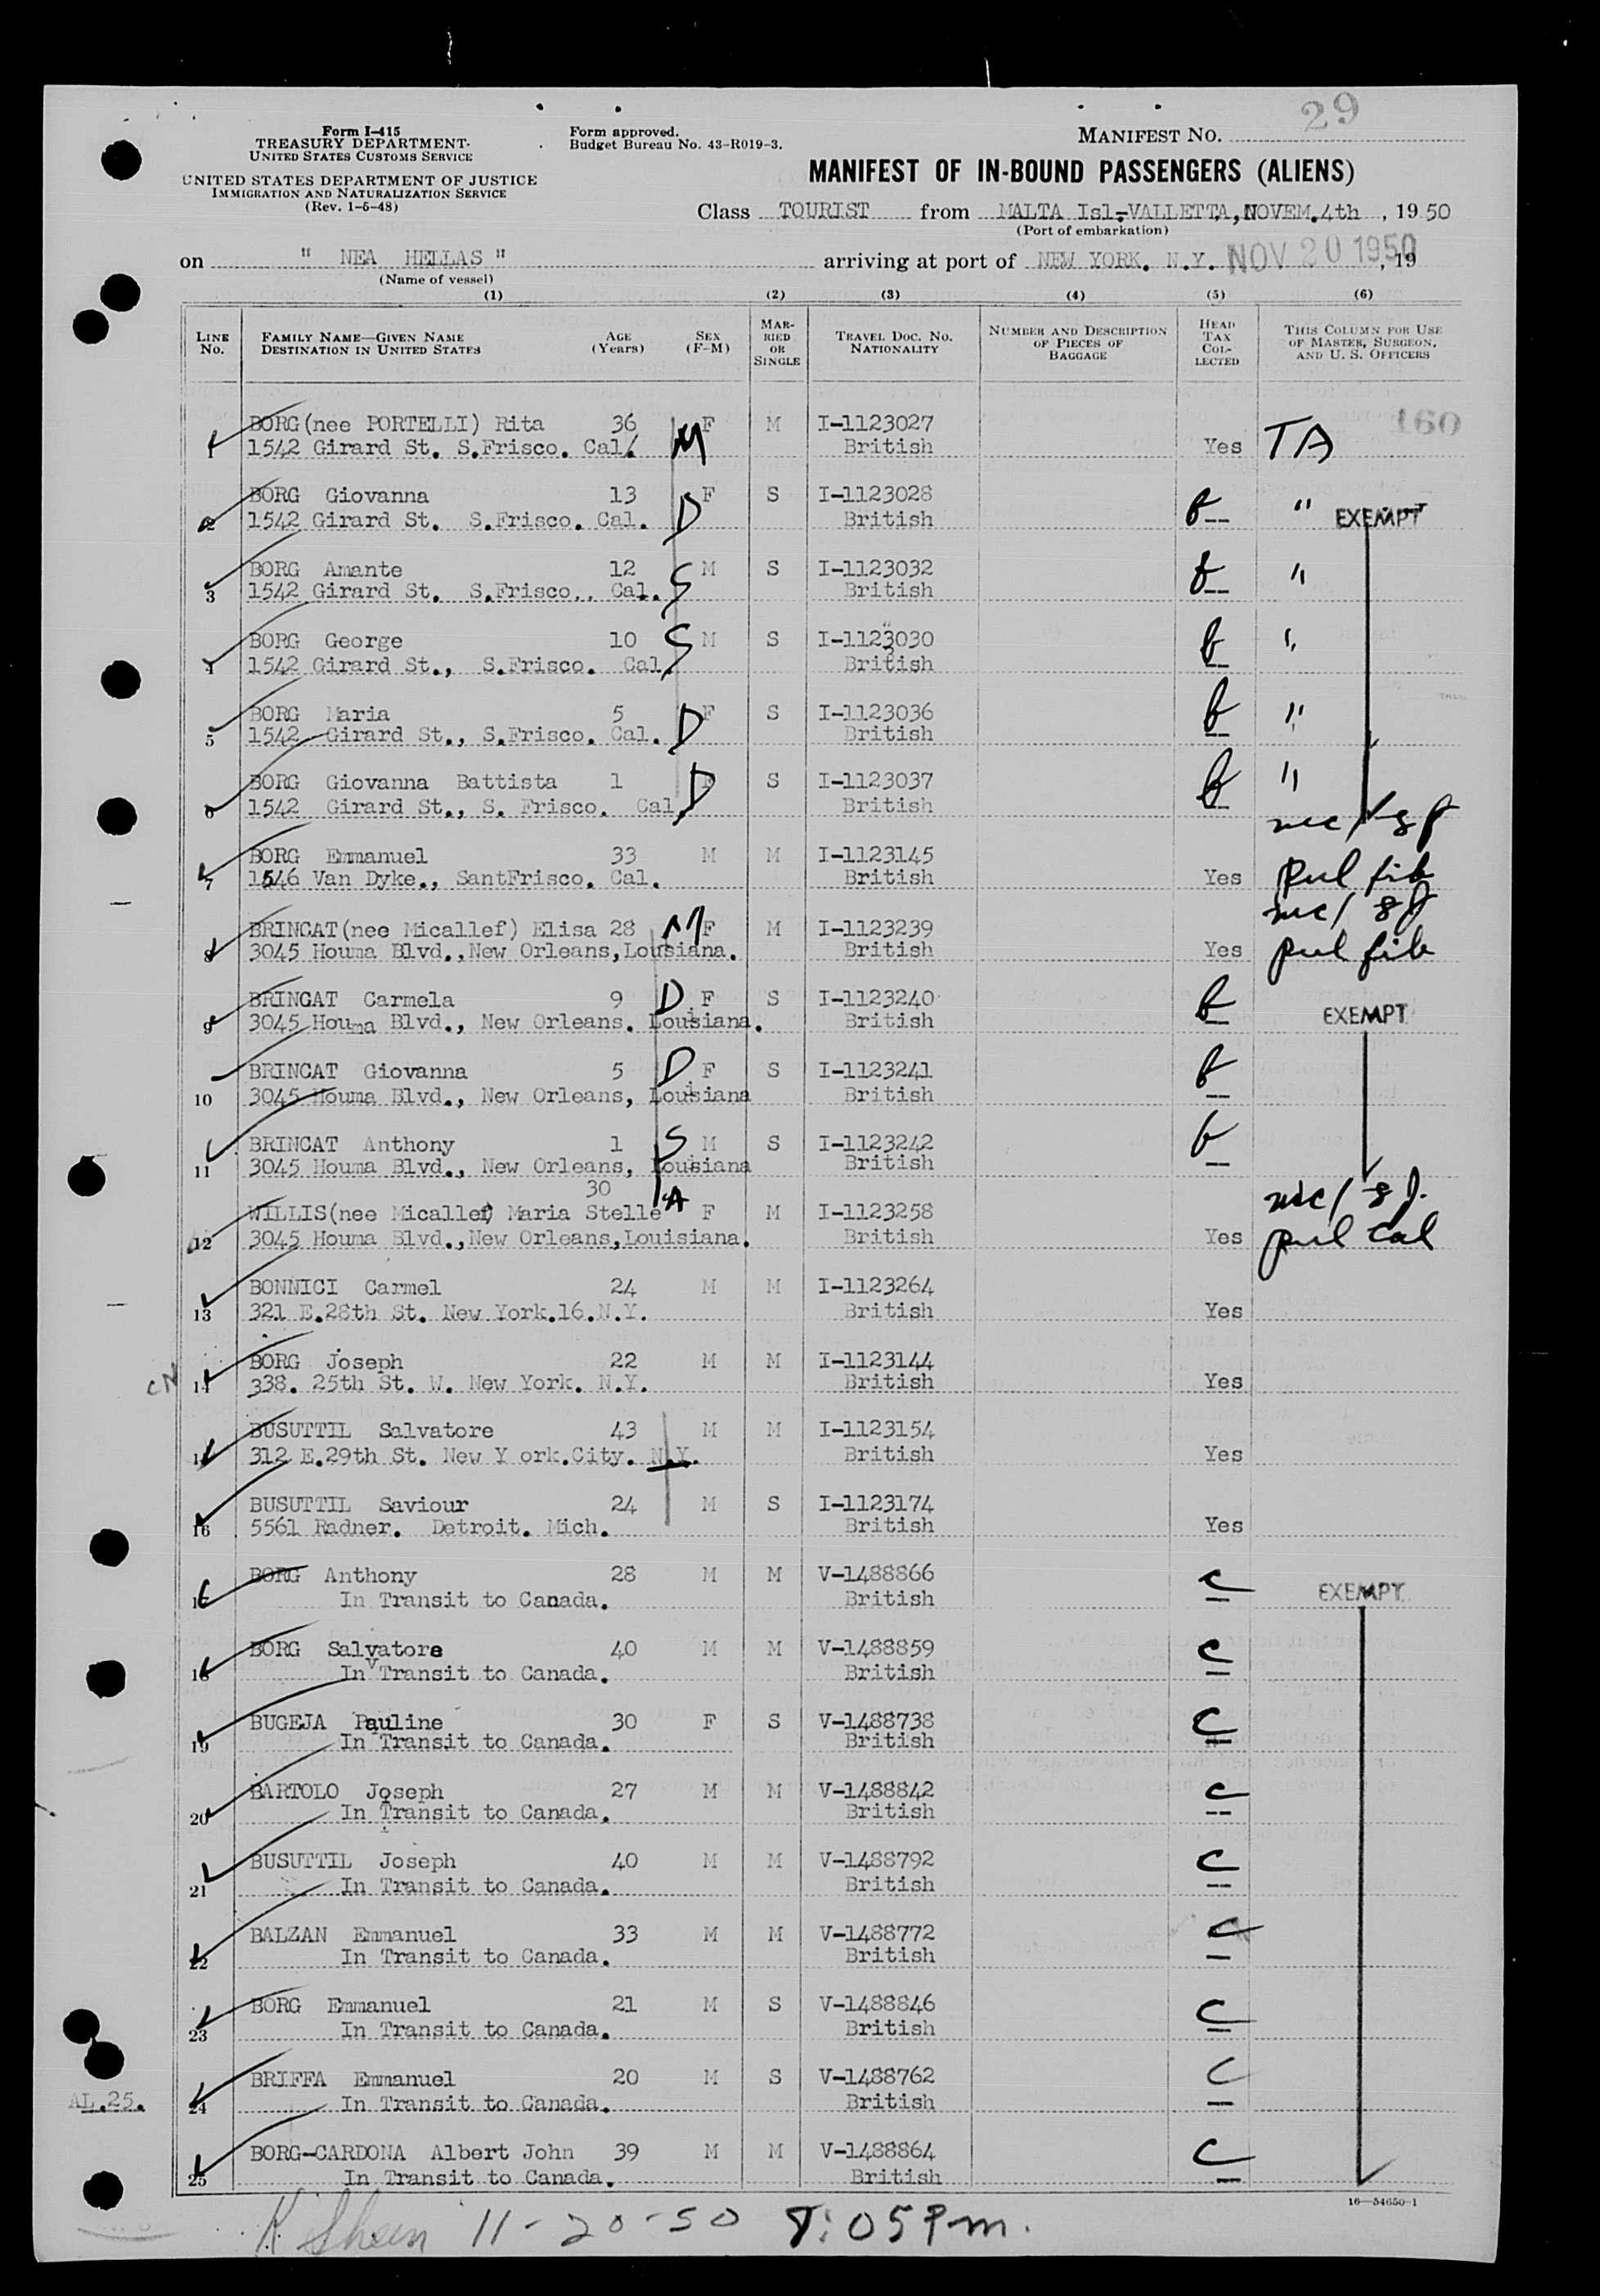 29
Form I-415
TREASURY DEPARTMENT
UNITED STATES CUSTOMS SERVICE
UNITED STATES DEPARTMENT OF JUSTICE
IMMIGRATION AND NATURALIZATION SERVICE
(Rev. 1-5-48)
Form approved.
Budget Bureau No. 43-R019-3.
MANIFEST NO.
MANIFEST OF IN-BOUND PASSENGERS (ALIENS)
Class TOURIST from MALTA Isl.-VALLETTA, NOVEM.4th, 19 50
(Port of embarkation)
on " NEA HELLAS " arriving at port of NEW YORK. N.Y. NOV 20 1950, 19
(Name of vessel)
(1) (2) (3) (4) (5) (6)
LINE No. FAMILY NAME—GIVEN NAME DESTINATION IN UNITED STATES AGE (Years) SEX (F-M) MARRIED OR SINGLE TRAVEL DOC. NO. NATIONALITY NUMBER AND DESCRIPTION OF PIECES OF BAGGAGE HEAD TAX COLLECTED THIS COLUMN FOR USE OF MASTER, SURGEON, AND U. S. OFFICERS
160
BORG(nee PORTELLI) Rita 36 F M I-1123027
1 1542 Girard St. S.Frisco. Cal. M British Yes TA
BORG Giovanna 13 F S I-1123028
2 1542 Girard St. S.Frisco. Cal. D British " EXEMPT
BORG Amante 12 M S I-1123032
3 1542 Girard St. S.Frisco.. Cal. S British "
BORG George 10 S M S I-1123030
4 1542 Girard St., S.Frisco. Cal British "
BORG Maria 5 F S I-1123036
5 1542 Girard St., S.Frisco. Cal. D British "
BORG Giovanna Battista 1 D S I-1123037 "
6 1542 Girard St., S. Frisco. Cal British
BORG Emmanuel 33 M M I-1123145
7 1546 Van Dyke., SantFrisco. Cal. British Yes pul fib
BRINCAT(nee Micallef) Elisa 28 M F M I-1123239
8 3045 Houma Blvd.,New Orleans,Lousiana. British Yes pul fib
BRINCAT Carmela 9 D F S I-1123240
9 3045 Houma Blvd., New Orleans. Lousiana. British EXEMPT
BRINCAT Giovanna 5 D F S I-1123241
10 3045 Houma Blvd., New Orleans, Lousiana British
BRINCAT Anthony 1 S M S I-1123242
11 3045 Houma Blvd., New Orleans, Lousiana British
30
WILLIS(nee Micallef) Maria Stelle A F M I-1123258
12 3045 Houma Blvd.,New Orleans,Louisiana. British Yes pul Cal
BONNICI Carmel 24 M M I-1123264
13 321 E.28th St. New York.16.N.Y. British Yes
BORG Joseph 22 M M I-1123144
CN 14 338. 25th St. W. New York. N.Y. British Yes
BUSUTTIL Salvatore 43 M M I-1123154
15 312 E.29th St. New Y ork.City. N.Y. British Yes
BUSUTTIL Saviour 24 M S I-1123174
16 5561 Radner. Detroit. Mich. British Yes
BORG Anthony 28 M M V-1488866 C EXEMPT
17 In Transit to Canada. British
BORG Salvatore 40 M M V-1488859 C
18 In Transit to Canada. British
BUGEJA Pauline 30 F S V-1488738 C
19 In Transit to Canada. British
BARTOLO Joseph 27 M M V-1488842 C
20 In Transit to Canada. British
BUSUTTIL Joseph 40 M M V-1488792 C
21 In Transit to Canada. British
BALZAN Emmanuel 33 M M V-1488772 C
22 In Transit to Canada. British
BORG Emmanuel 21 M S V-1488846 C
23 In Transit to Canada. British
BRIFFA Emmanuel 20 M S V-1488762 C
AL.25. 24 In Transit to Canada. British
BORG-CARDONA Albert John 39 M M V-1488864 C
25 In Transit to Canada. British
16—54650-1
11-20-50 8:05 Pm.